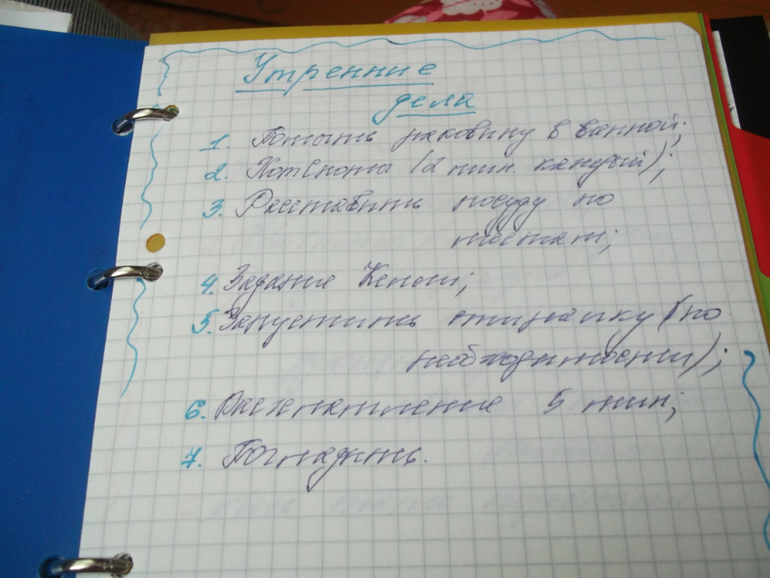 Утренние
дела
1. Помыть раковину в ванной;
2. (2 мин. каждый);
3. Расставить посуду по
местам;
4. Задание
5. Запустить стиралку (по
необходимости);
6. Расхламление 5 мин;
7. Погладить.